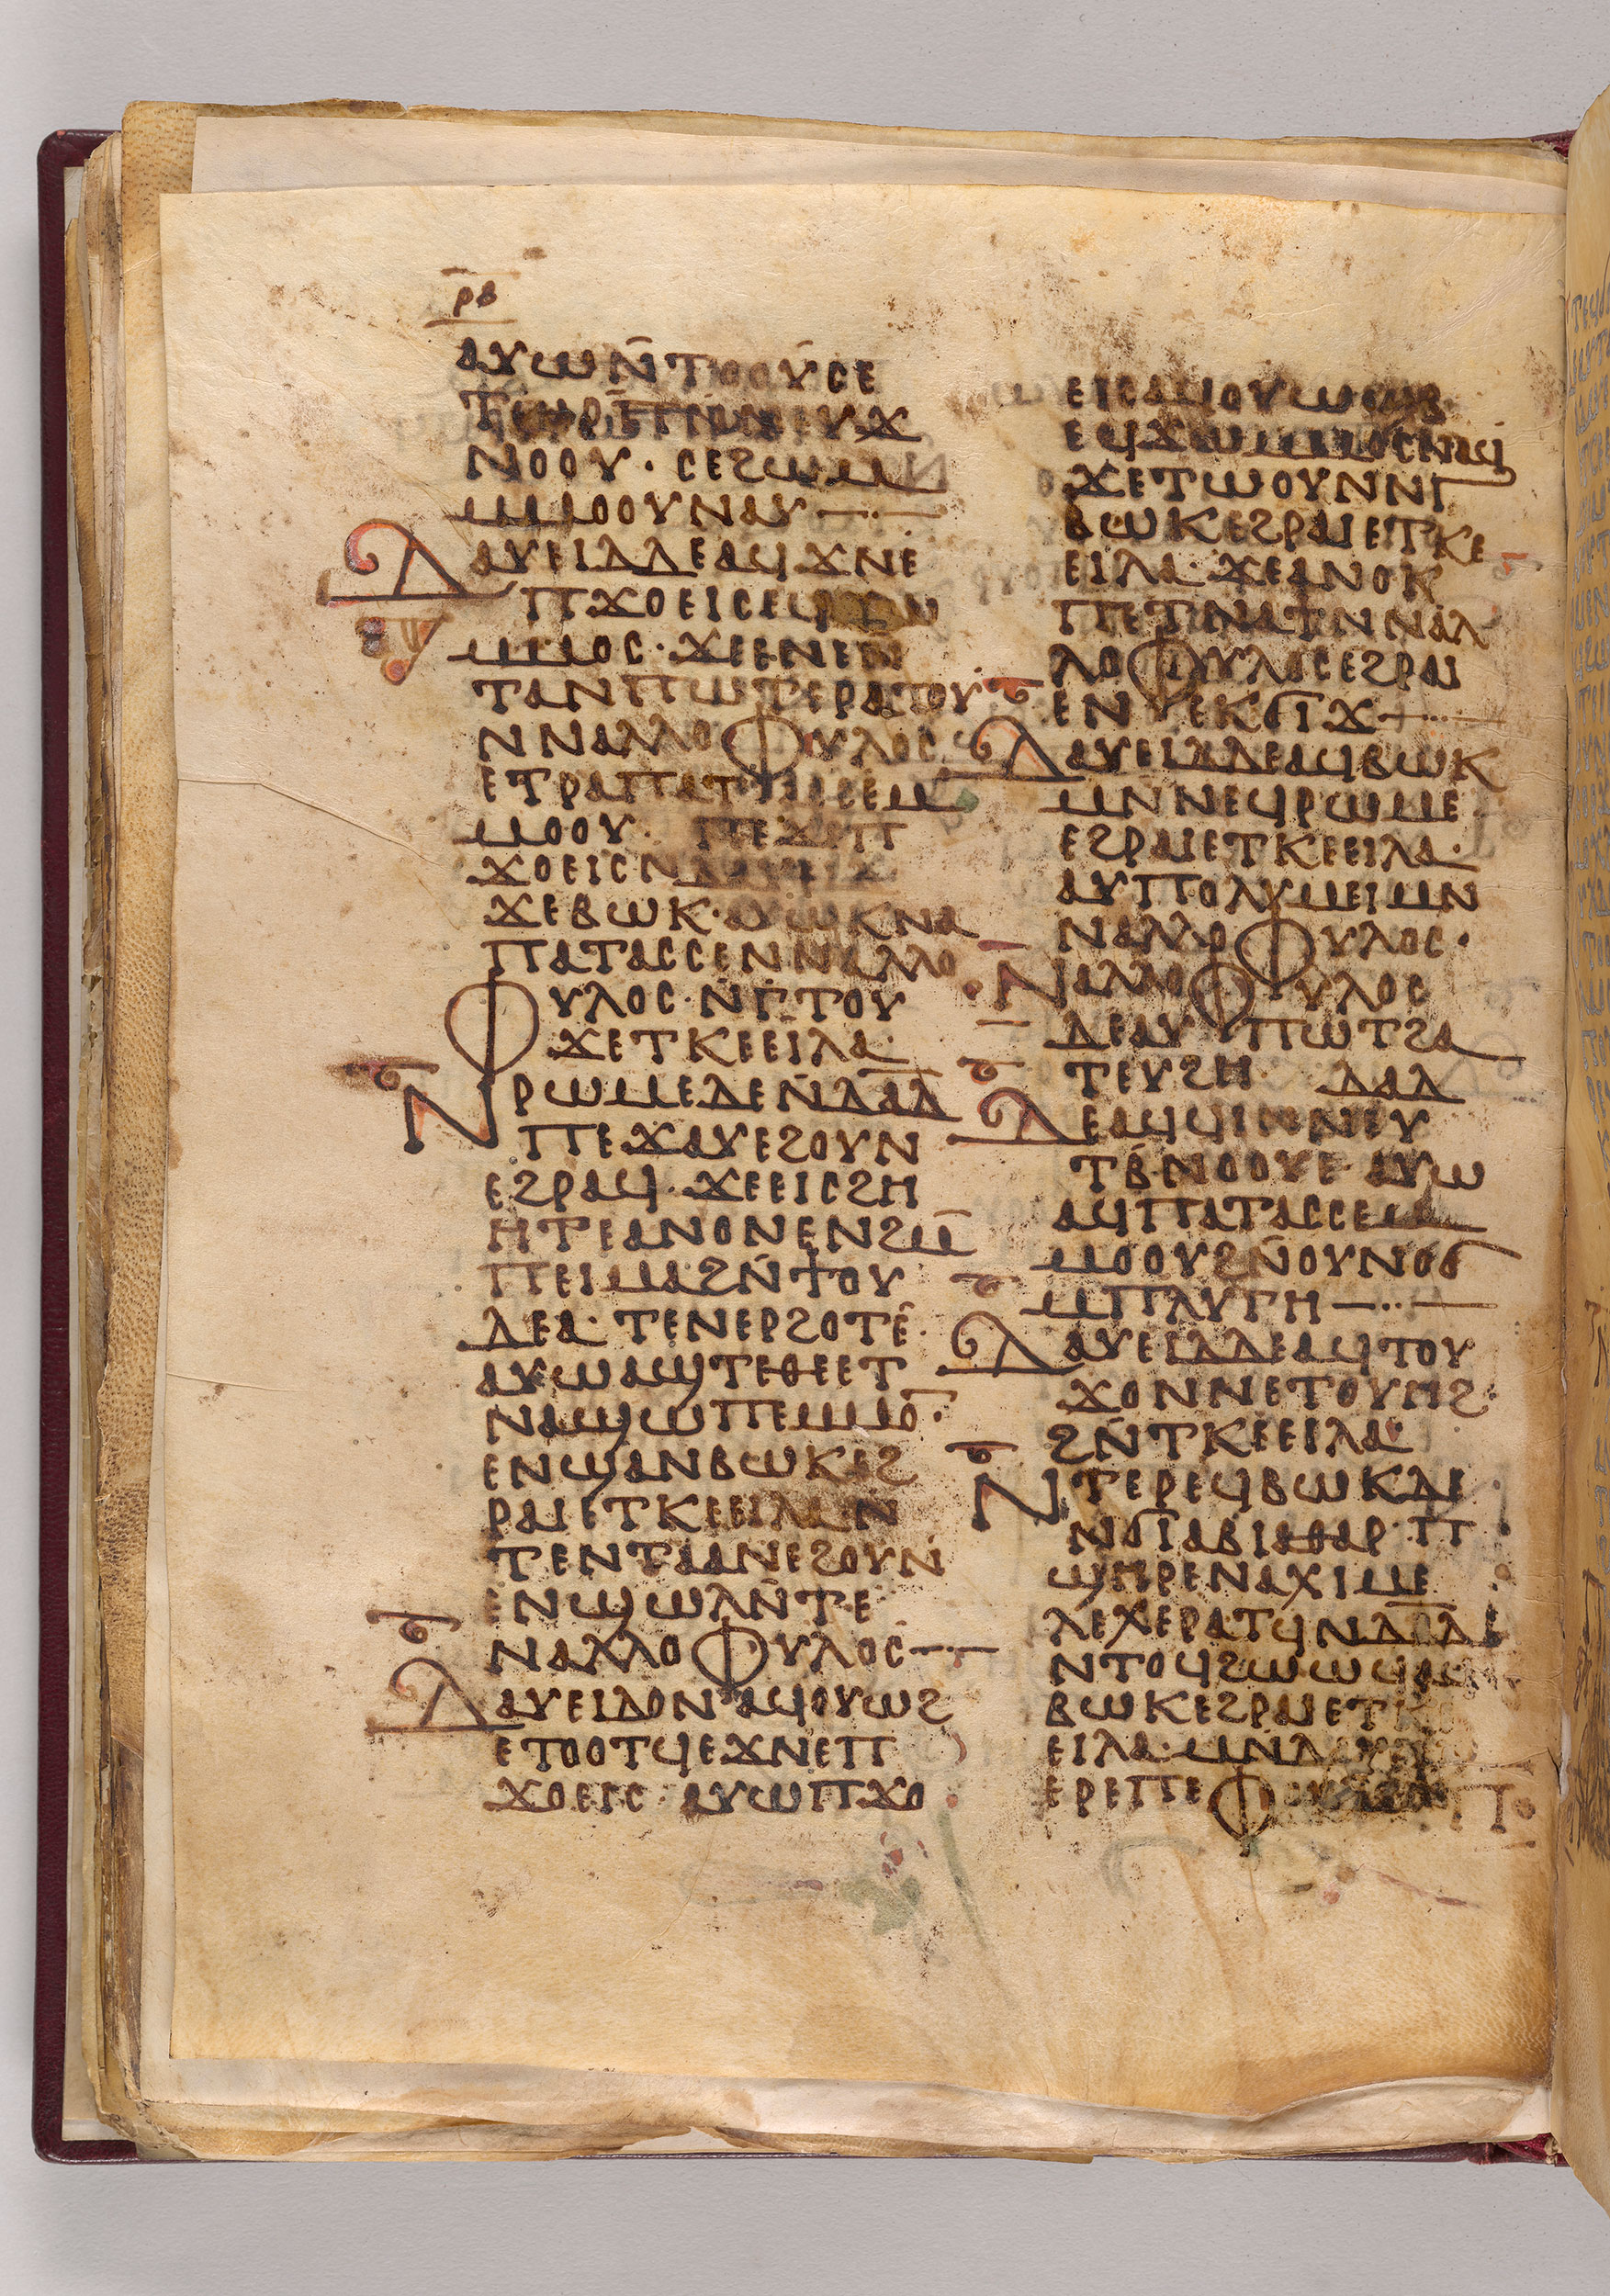 ⲣⲃ
ⲁⲩⲱⲛ̄ⲧⲟⲟⲩⲥⲉ
ⲛⲟⲟⲩ· ⲥⲉϩⲱⲙ
ⲙⲙⲟⲟⲩⲛⲁⲩ —··—
ⲇⲁⲩⲉⲓⲇⲇⲉⲁϥϫⲛⲉ
ⲡϫⲟⲉⲓⲥⲉϥϫⲱ
ⲙⲙⲟⲥ· ϫⲉⲉⲛⲉⲉⲓ
ⲧⲁⲛⲡⲱⲧⲉⲣⲁⲧⲟⲩ
ⲛⲛⲁⲗⲗⲟⲫⲩⲗⲟⲥ
ⲉⲧⲣⲁⲡⲁⲧⲁⲥⲥⲉⲙ
ⲙⲟⲟⲩ· ⲡⲉϫⲉⲡ
ϫⲟⲉⲓⲥⲛⲇⲁⲩⲉⲓⲇ
ϫⲉⲃⲱⲕ· ⲁⲩⲱⲕⲛⲁ
ⲡⲁⲧⲁⲥⲥⲉⲛⲛⲁⲗⲗⲟ
ⲫⲩⲗⲟⲥ· ⲛ̄ⲅ̄ⲧⲟⲩ
ϫⲉⲧⲕⲉⲉⲓ̈ⲗⲁ·
ⲛⲣⲱⲙⲉⲇⲉⲛ̄ⲇⲁ̄ⲇ
ⲡⲉϫⲁⲩⲉϩⲟⲩⲛ
ⲉϩⲣⲁϥ· ϫⲉⲉⲓⲥϩⲏ
ⲏⲧⲉⲁⲛⲟⲛⲉⲛϩⲙ̄
ⲡⲉⲓⲙⲁϩⲛ̄ϯⲟⲩ
ⲇⲉⲁ· ⲧⲉⲛⲉⲣϩⲟⲧⲉ·
ⲁⲩⲱⲁϣⲧⲉⲑⲉⲉⲧ
ⲛⲁϣⲱⲡⲉⲙⲙⲟ·
ⲉⲛϣⲁⲛⲃⲱⲕⲉϩ
ⲣⲁⲓⲉⲧⲕⲉⲉⲓⲗⲁⲛ
ⲧⲉⲛⲧⲁⲁⲛⲉϩⲟⲩⲛ
ⲉⲛϣⲱⲗⲛ̄ⲧⲉ
ⲛⲁⲗⲗⲟⲫⲩⲗⲟⲥ —·—
ⲇⲁⲩⲉⲓⲇⲟⲛⲁϥⲟⲩⲱϩ
ⲉⲧⲟⲟⲧϥⲉϫⲛⲉⲡ
ϫⲟⲉⲓⲥ· ⲁⲩⲱⲡϫⲟ
ⲉⲓⲥⲁϥⲟⲩⲱϣⲃ
ⲉϥϫⲱⲙⲙⲟⲥⲛⲁϥ
ϫⲉⲧⲱⲟⲩⲛⲛⲅ
ⲃⲱⲕⲉϩⲣⲁⲓⲉⲧⲕⲉ
ⲉⲓⲗⲁ· ϫⲉⲁⲛⲟⲕ
ⲡⲉⲧⲛⲁϯⲛⲛⲁⲗ
ⲗⲟⲫⲩⲗⲟⲥⲉϩⲣⲁⲓ
ⲉⲛⲉⲕϭⲓϫ —··—
ⲇⲁⲩⲉⲓⲇⲇⲉⲁϥⲃⲱⲕ
ⲙⲛ̄ⲛⲉϥⲣⲱⲙⲉ·
ⲉϩⲣⲁⲓⲉⲧⲕⲉⲉⲓⲗⲁ·
ⲁⲩⲡⲟⲗⲩⲙⲉⲓⲙⲛ
ⲛⲁⲗⲗⲟⲫⲩⲗⲟⲥ·
ⲛⲁⲗⲗⲟⲫⲩⲗⲟⲥ
ⲇⲉⲁⲩⲡⲱⲧϩⲁ
ⲧⲉⲩϩⲏ ⲇⲁⲇ
ⲇⲉⲁϥϥⲓⲛⲛⲉⲩ
ⲧⲃ̄ⲛⲟⲟⲩⲉ· ⲁⲩⲱ
ⲁϥⲡⲁⲧⲁⲥⲥⲉⲙ
ⲙⲟⲟⲩϩⲛ̄ⲟⲩⲛⲟϭ
ⲙⲡⲗⲩⲅⲏ —··—
ⲇⲁⲩⲉⲓⲇⲇⲉⲁϥⲧⲟⲩ
ϫⲟⲛⲛⲉⲧⲟⲩⲏϩ·
ϩⲛ̄ⲧⲕⲉⲉⲓⲗⲁ
ⲛⲧⲉⲣⲉϥⲃⲱⲕⲇⲉ
ⲛϭⲓⲁⲃⲓⲁⲑⲁⲣ· ⲡ
ϣⲏⲣⲉⲛⲁⲭⲓⲙⲉ
ⲗⲉⲭⲉⲣⲁⲧϥⲛⲇⲁ̄ⲇ
ⲛⲧⲟϥϩⲱⲱϥⲁϥ
ⲃⲱⲕⲉϩⲣⲁⲓⲉⲧⲕⲉ
ⲉⲓⲗⲁ· ⲙⲛ̄ⲇⲁⲩⲉⲓⲇ
ⲉⲣⲉⲡⲉⲫ